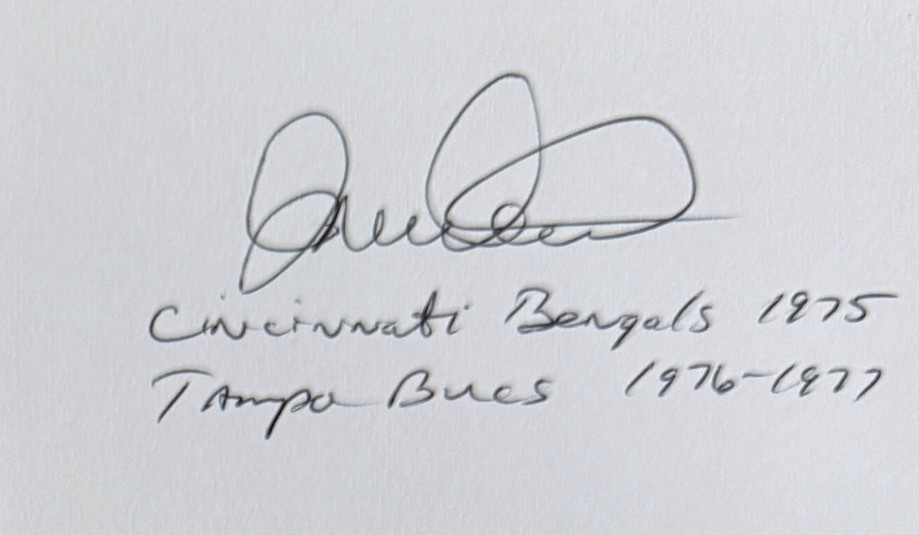 Cincinnati Bengals 1975
Tampa Bucs 1976-1977